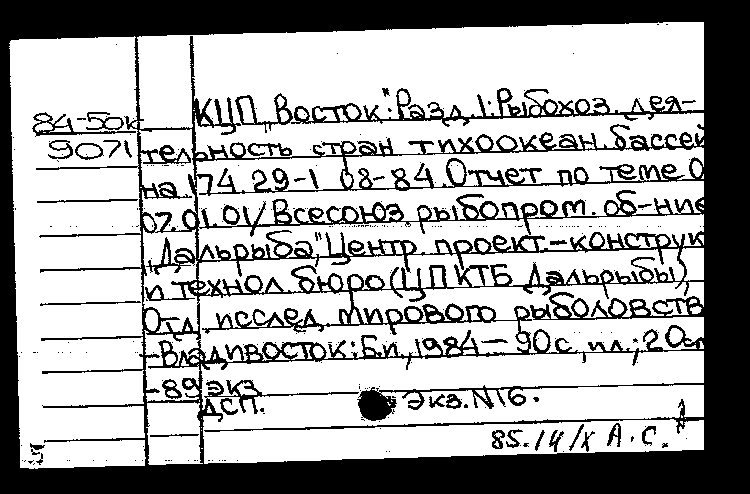 84-50к
9071
КЦП „Восток": Разд. 1: Рыбохоз. дея-
тельность стран тихоокеан. бассей
на. 174. 29-1 08-84. Отчет по теме 0
07.01.01/ Всесоюз. рыбопром. об-ние
„Дальрыба", Центр. проект.-конструк
и технол. бюро (ЦПКТБ Дальрыбы),
Отд. исслед. мирового рыболовств
-Владивосток: Б.и., 1984 — 90с., ил.; 20см
-89 экз.
ДСП. Экз. N16.
85.14/X А.С.